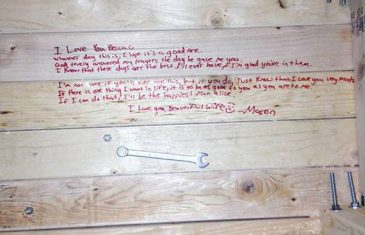 I Love You Because
whatever day this is, I hope it's a good one
God truly answered my prayers the day he gave me you
I know that these days are the best I'll ever have, & I'm glad you're in them.
I'm not sure if you'll ever see this, but if you do, Just know that I love you very much
If there is one thing I want in life, it is to be as good to you as you are to me
If I can do that, I'll be the happiest Man alive
I love you Beautiful Wife - Mason